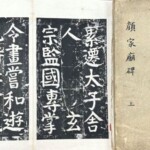 顔家廟碑 上
累遷太子舍
人 玄
宗監國專掌
令畫嘗和遊